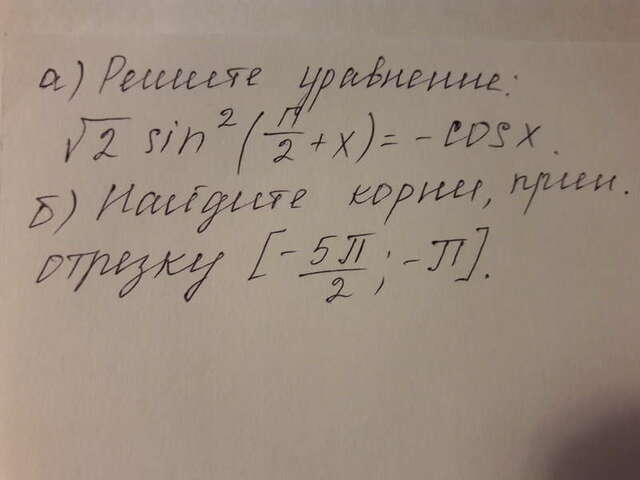 а) Решите уравнение:
√2 sin²(π/2 + x) = - cosx.
б) Найдите корни, прин.
отрезку [-5π/2; -π].